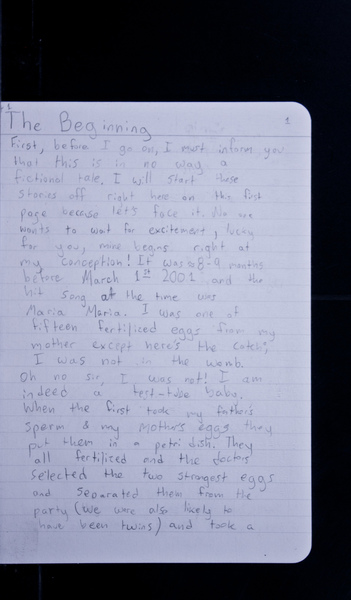 1
1
The Beginning
First, before I go on, I must inform you
that this is in no way a
fictional tale. I will start these
stories off right here on this first
page because let's face it. No one
wants to wait for excitement, lucky
for you, mine begins right at
my conception! It was 8-9 months
before March 1st 2001 and the
hit song at the time was
Maria Maria. I was one of
fifteen fertiliced eggs from my
mother except here's the catch;
I was not in the womb.
Oh no sir, I was not! I am
indeed a test-tube baby.
When the first took my father's
sperm & my mother's eggs they
put them in a petri dish. They
all fertilized and the doctors
selected the two strongest eggs
and separated them from the
party (we were also likely to
have been twins) and took a